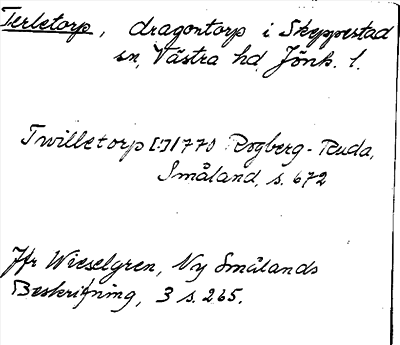 Terletorp, dragontorp i Skeppestad
sn, Västra hd, Jönk. l.
Twilletorp [:] 1770 Rogberg-Ruda,
Småland, s. 672
Jfr Wieselgren, Ny Smålands
Beskrifning, 3 s. 265.